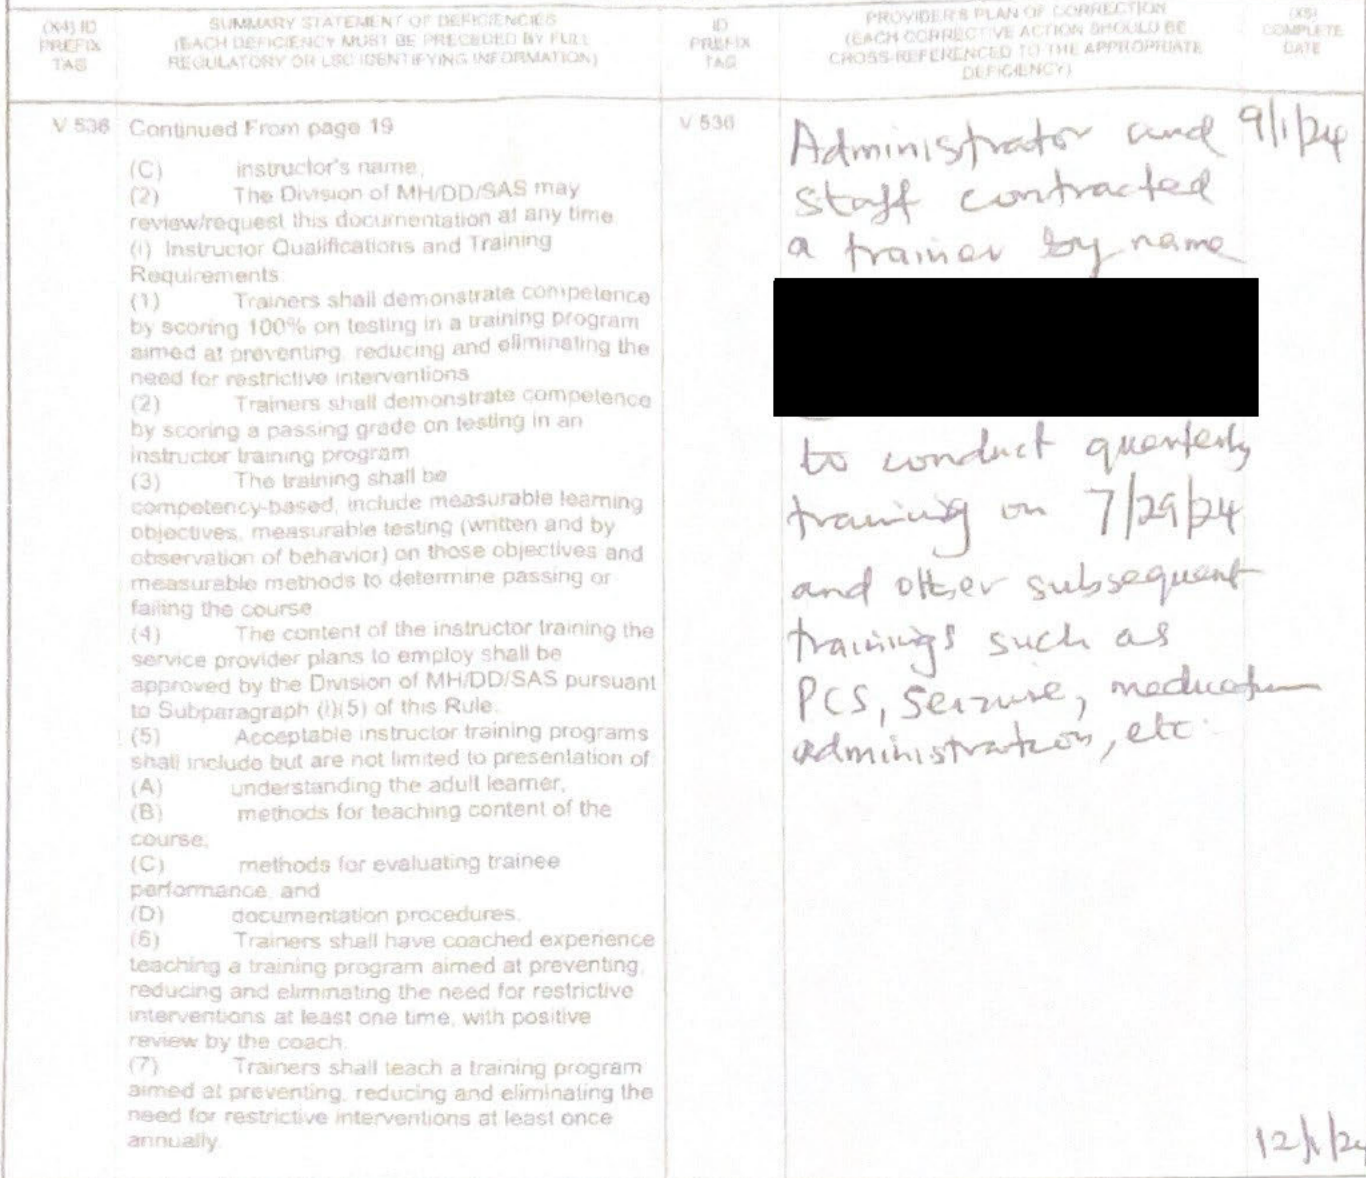 (X4) ID
PREFIX
TAG
SUMMARY STATEMENT OF DEFICIENCIES
(EACH DEFICIENCY MUST BE PRECEDED BY FULL
REGULATORY OR LSC IDENTIFYING INFORMATION)
ID
PREFIX
TAG
PROVIDER'S PLAN OF CORRECTION
(EACH CORRECTIVE ACTION SHOULD BE
CROSS-REFERENCED TO THE APPROPRIATE
DEFICIENCY)
(X5)
COMPLETE
DATE
V 536
Continued From page 19
(C) instructor's name,
(2) The Division of MH/DD/SAS may
review/request this documentation at any time
(i) Instructor Qualifications and Training
Requirements:
(1) Trainers shall demonstrate competence
by scoring 100% on testing in a training program
aimed at preventing, reducing and eliminating the
need for restrictive interventions
(2) Trainers shall demonstrate competence
by scoring a passing grade on testing in an
instructor training program
(3) The training shall be
competency-based, include measurable learning
objectives, measurable testing (written and by
observation of behavior) on those objectives and
measurable methods to determine passing or
failing the course
(4) The content of the instructor training the
service provider plans to employ shall be
approved by the Division of MH/DD/SAS pursuant
to Subparagraph (i)(5) of this Rule.
(5) Acceptable instructor training programs
shall include but are not limited to presentation of
(A) understanding the adult learner,
(B) methods for teaching content of the
course,
(C) methods for evaluating trainee
performance, and
(D) documentation procedures.
(6) Trainers shall have coached experience
teaching a training program aimed at preventing,
reducing and eliminating the need for restrictive
interventions at least one time, with positive
review by the coach.
(7) Trainers shall teach a training program
aimed at preventing, reducing and eliminating the
need for restrictive interventions at least once
annually.
V 536
Administrator and
staff contracted
a trainer by name
to conduct quarterly
training on 7/29/24
and other subsequent
trainings such as
PCS, Seizure, medication
administration, etc.
9/1/24
12/1/24